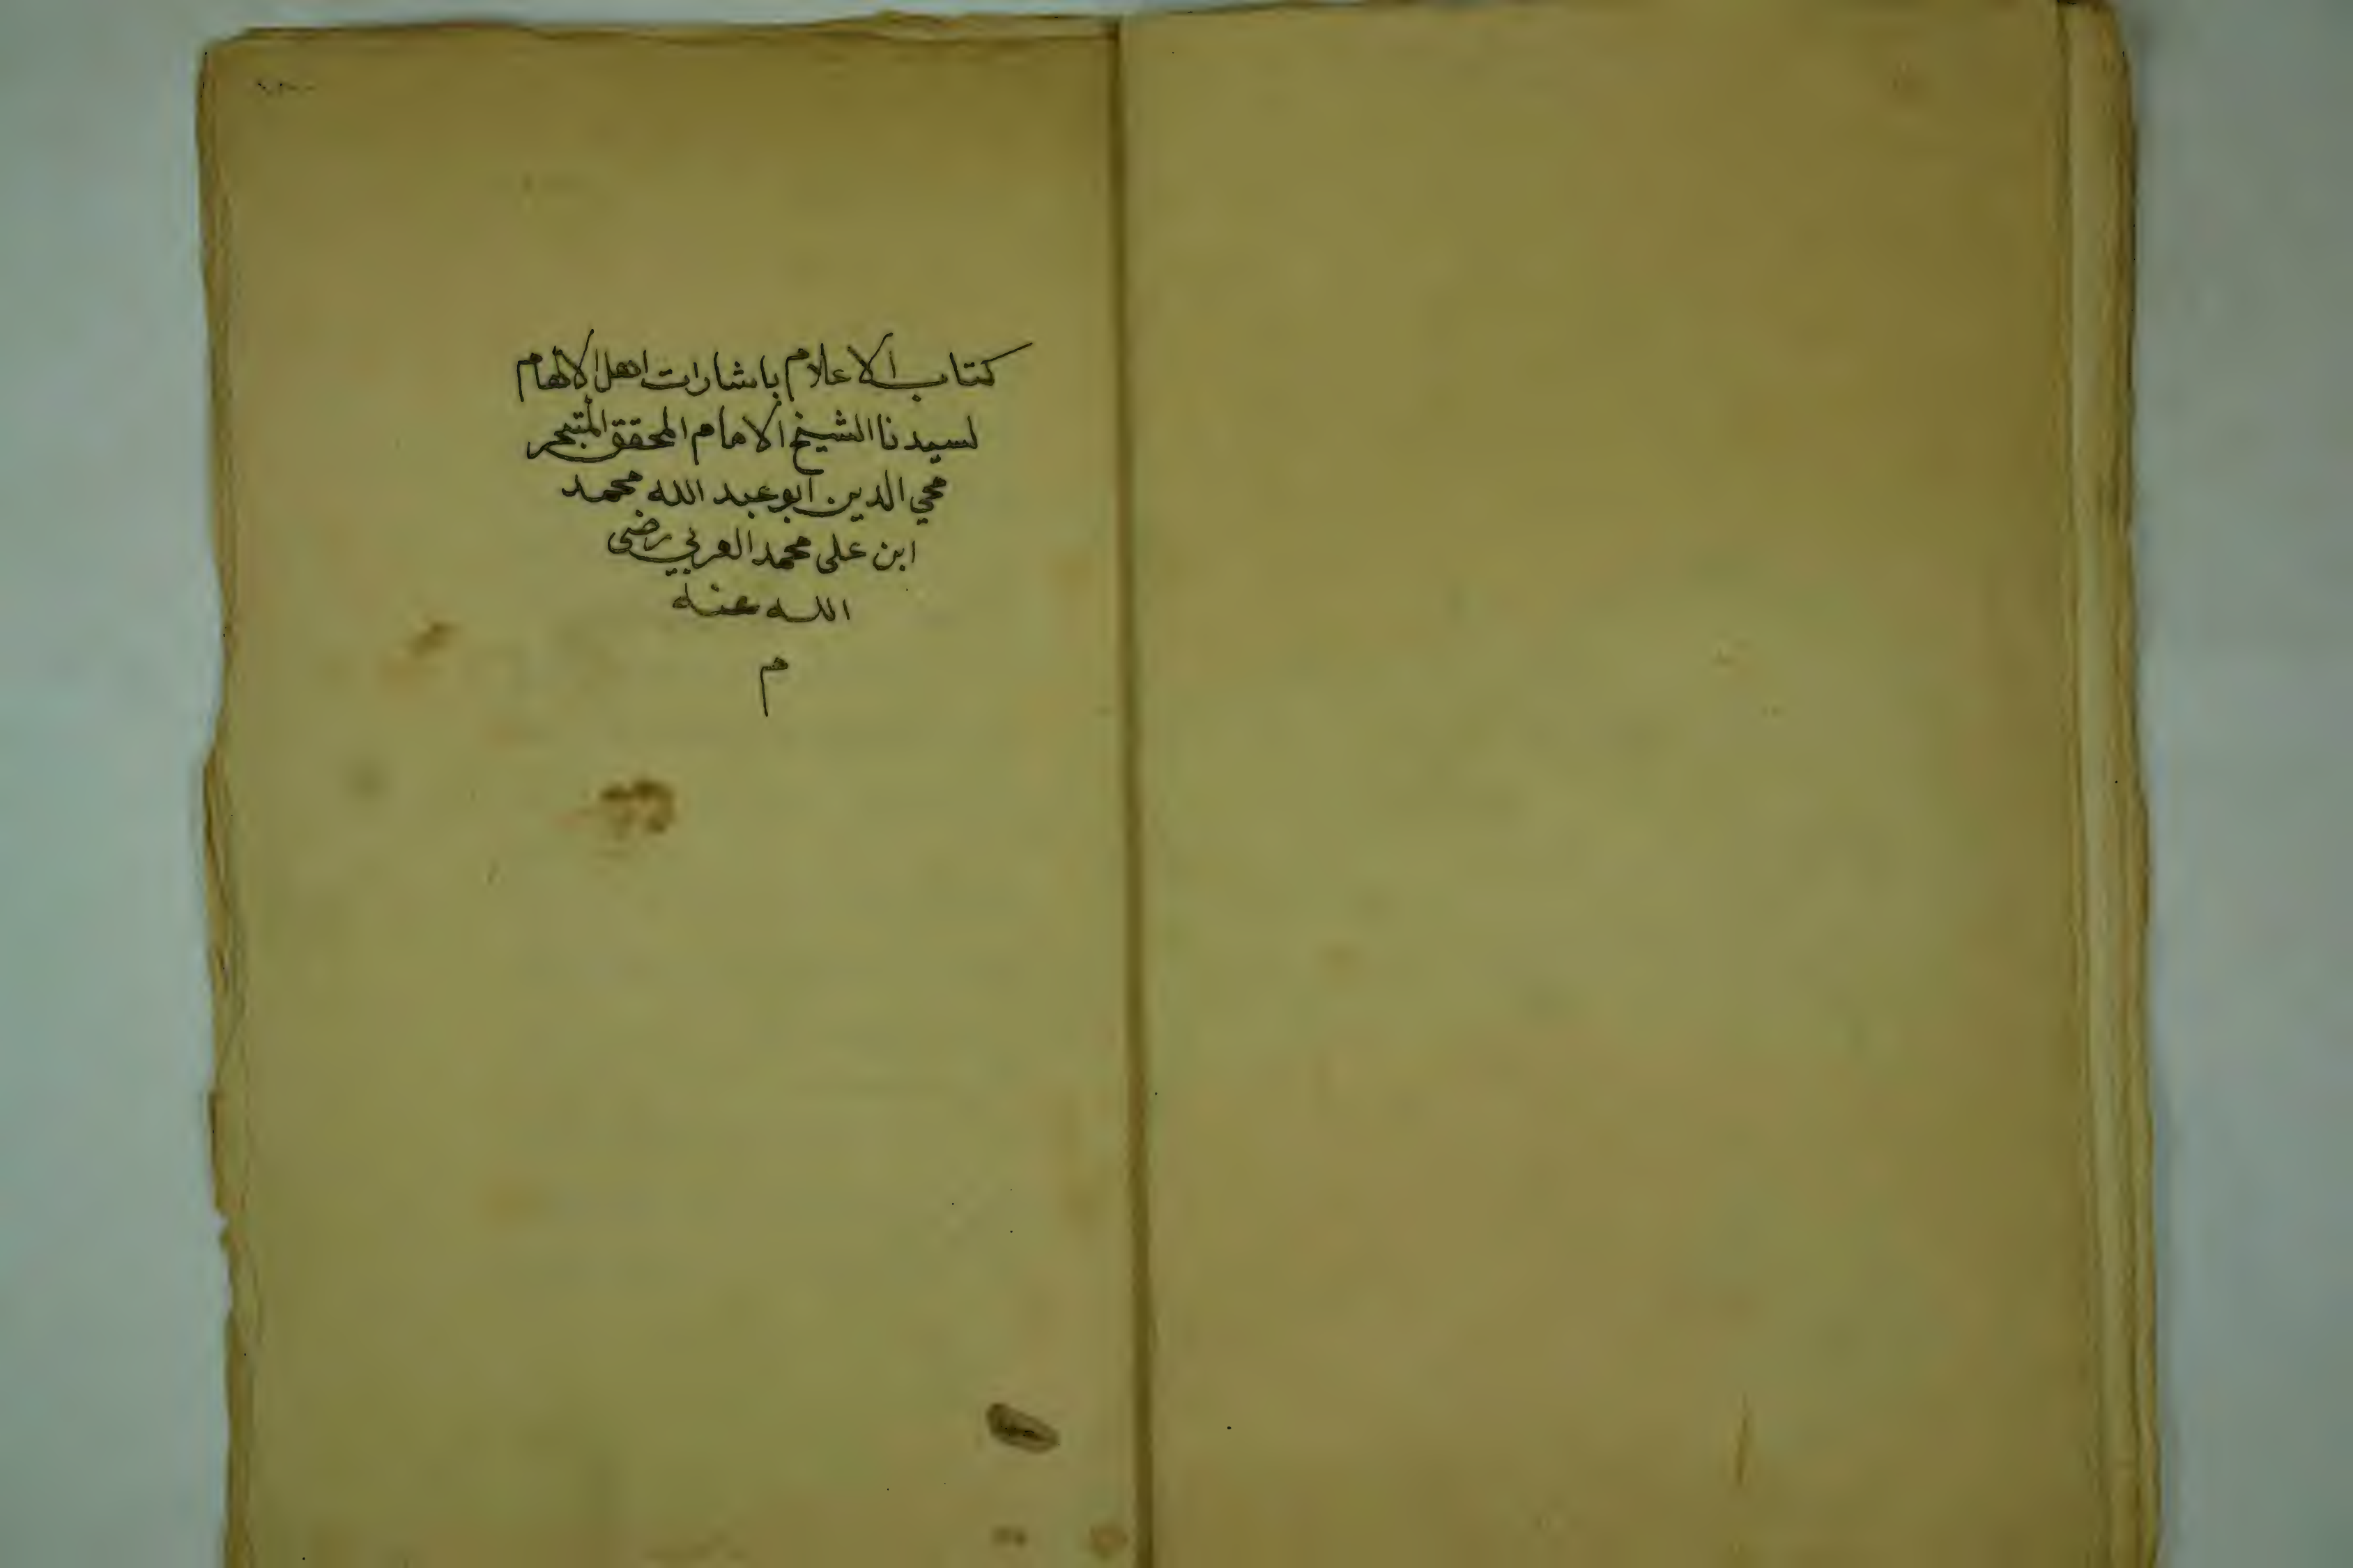 كتاب الاعلام باشارات اهل الالهام
لسيدنا الشيخ الامام المحقق المتبحر
محي الدين ابو عبد الله محمد
ابن على محمد العربي رضى
الله عنه
م